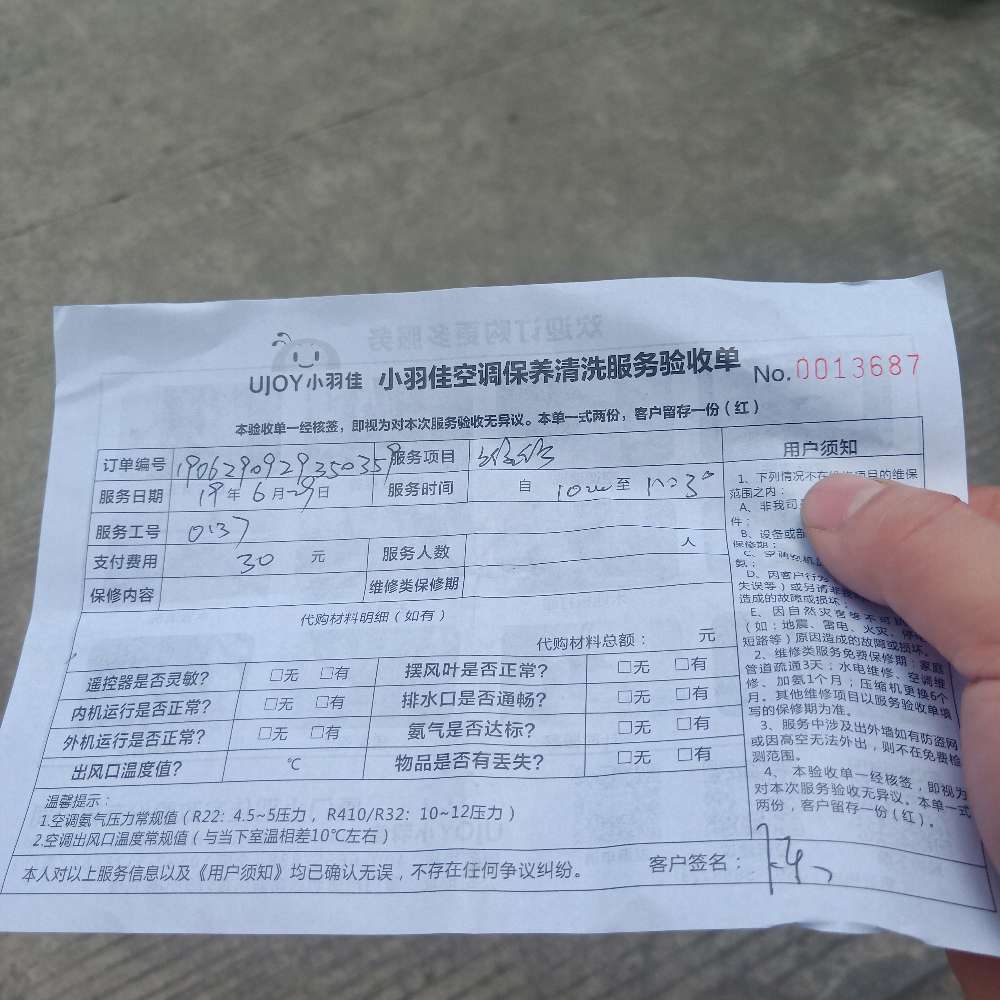 UJOY小羽佳 小羽佳空调保养清洗服务验收单 No.0013687
本验收单一经核签，即视为对本次服务验收无异议。本单一式两份，客户留存一份（红）
订单编号 190629092935035 服务项目
服务日期 19年6月29日 服务时间 自 至
服务工号 0137
支付费用 30 元 服务人数 人
保修内容 维修类保修期
代购材料明细（如有）
代购材料总额： 元
遥控器是否灵敏? □无 □有 摆风叶是否正常? □无 □有
内机运行是否正常? □无 □有 排水口是否通畅? □无 □有
外机运行是否正常? □无 □有 氨气是否达标? □无 □有
出风口温度值? ℃ 物品是否有丢失? □无 □有
温馨提示：
1.空调氨气压力常规值（R22：4.5~5压力，R410/R32：10~12压力）
2.空调出风口温度常规值（与当下室温相差10℃左右）
本人对以上服务信息以及《用户须知》均已确认无误，不存在任何争议纠纷。 客户签名：
用户须知
1、下列情况不在 项目的维保
范围之内：
A、非我司
件；
B、设备或
保修期；
氨；
D、因客户行
失误等）或另请非我
造成的故障或损坏；
E、因自然灾害等不可
（如：地震、雷电、火灾、停
短路等）原因造成的故障或损坏。
2、维修类服务免费保修期：家庭
管道疏通3天；水电维修、空调维
修、加氨1个月；压缩机更换6个
月。其他维修项目以服务验收单填
写的保修期为准。
3、服务中涉及出外墙如有防盗网
或因高空无法外出，则不在免费检
测范围。
4、本验收单一经核签，即视为
对本次服务验收无异议。本单一式
两份，客户留存一份（红）。
欢迎订购更多服务